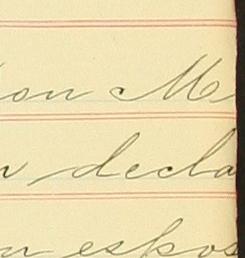 on M
n decla
n espos